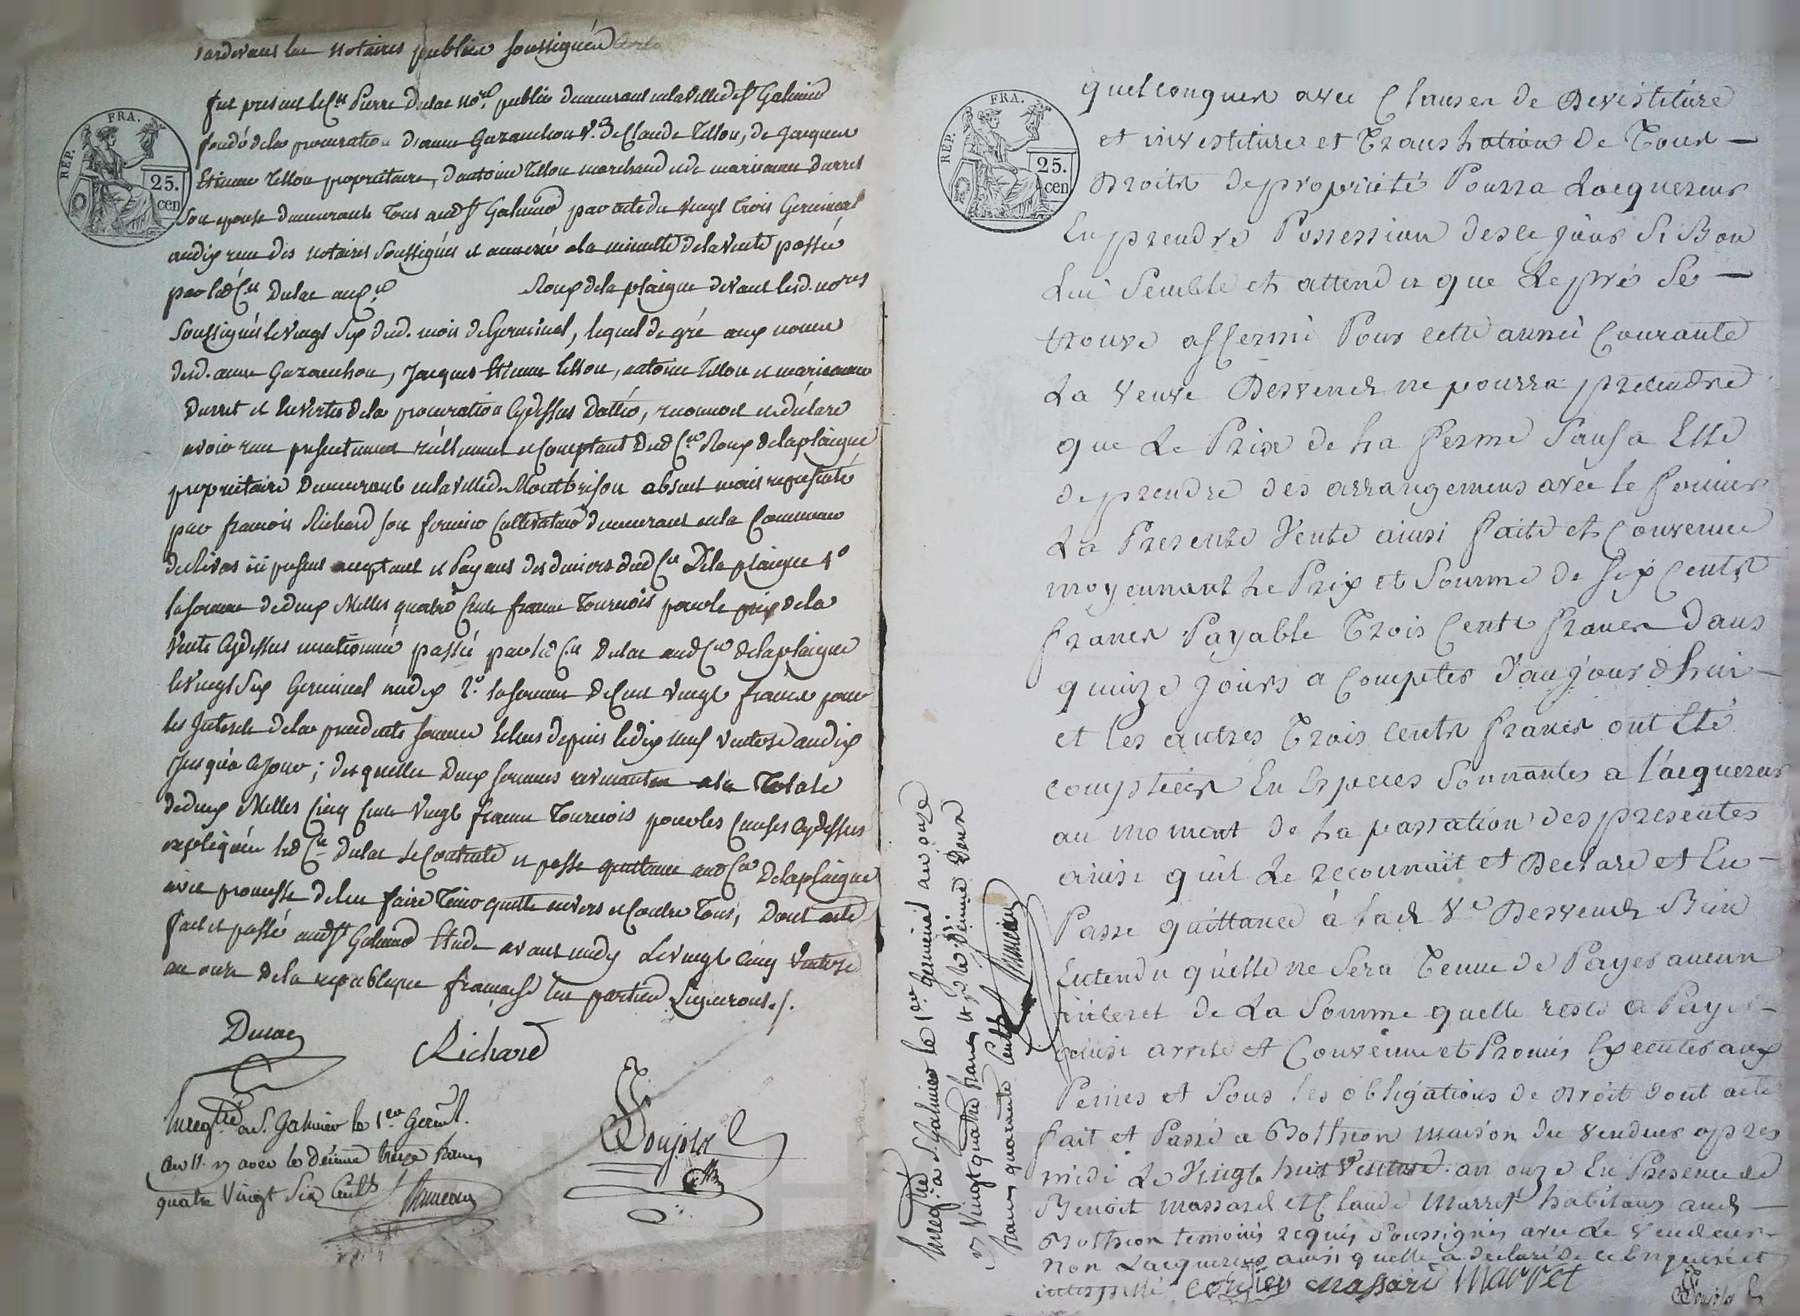 Pardevant les notaires publics soussignés
REP. FRA. 25. cen
fut present le Cen Pierre Dulac nore public demeurant en la ville de St Galmier
fondé de la procuration d'anne Gazanchon Ve de Claude Tillon, de Jacques
Etienne Tillon propriétaire, d'antoine Tillon marchand et de marianne Durret
son epouse demeurants tous aud St Galmier par acte du vingt trois Germinal
an dix reçu des notaires soussignés et annexé a la minutte de la vente passée
par led Cen Dulac au Cen Roux de la plaigne devant lesd. nores
soussignés le vingt six dud. mois de Germinal, lequel de gré aux noms
desd. anne Gazanchon, Jacques Etienne Tillon, antoine Tillon et marianne
Durret et en vertu de la procuration cydessus dattée, reconnoit et déclare
avoir reçu presentement réellement et comptant dud Cen Roux de la plaigne
propriétaire demeurant en la ville de Montbrison absent mais représenté
par françois Richard son fermier cultivateur demeurant en la Commune
de Rivas ici present acceptant et payant des deniers dud Cen De la plaigne 1o
la somme de deux Milles quatre Cent francs Tournois pour le prix de la
vente cydessus mentionnée passée par led Cen Dulac aud Cen delaplaigne
le vingt six Germinal an dix 2o la somme de Cent vingt francs pour
les Interets de la predicte somme echeus depuis le dix neuf ventose an dix
jusqu'a ce jour; desquelles deux sommes revenantes a la Totale
de deux Milles Cinq Cent vingt francs Tournois pour les Causes cydessus
expliquées led Cen Dulac se contente et passe quittance aud Cen Delaplaigne
avec promesse de l'en faire Tenir quitte envers et contre Tous, Dont acte
fait et passé aud St Galmier Etude avant midy le vingt cinq ventose
an onze de la republique française les parties signeront ./.
Dulac
Richard
Enregtré a St. Galmier le 1er Germl.
an 11. R avec le décime treize francs
quatre vingt six Centes
REP. FRA. 25. cen
quelconques avec Clauses de Devestiture
et investiture et Translation de Tous —
Droits de propriété Pourra Lacquereur
En prendre Possession desce jour Si Bon
Lui Semble et attendu que Le pré Se —
trouve affermé Pour cette année Courante
La veuve Desvend ne pourra pretendre
que Le Prix de La ferme Sauf a Elle
de prendre des arrangemens avec le fermier
La Presente Vente ainsi faite et Convenue
moyennant Le Prix et Somme de Six Cents
francs Payable Trois Cents francs Dans
quinze jours a Compter d'aujourdhui —
et les autres Trois Cents francs ont Eté
comptées En Especes Sonnantes a l'acquereur
au moment de La passation des presentes
ainsi quil Le reconnait et Declare et En —
Passe quittance à lad Ve Desvend Bien
Entendu qu'elle ne Sera Tenue de Payer aucun
interet de La Somme quelle reste a Payer —
ainsi arrété et Convenue et Promis Executer aux
Peines et Sous les obligations de Droit dont acte
fait et Passé a Bothéon maison du vendeur apres
midi Le Vingt huit Ventose an onze En Presence de
Benoit massard et Claude Marret habitans aud —
Bothéon temoins requis Soussignés avec Le Vendeur
Non Lacquereur ainsi quelle a declaré de ce Enquise et
interpellé massard marret
Enregtré a St Galmier le 1er Germinal an onze
R Vingt quatre francs et pr le Décime Deux
francs quarante Centes